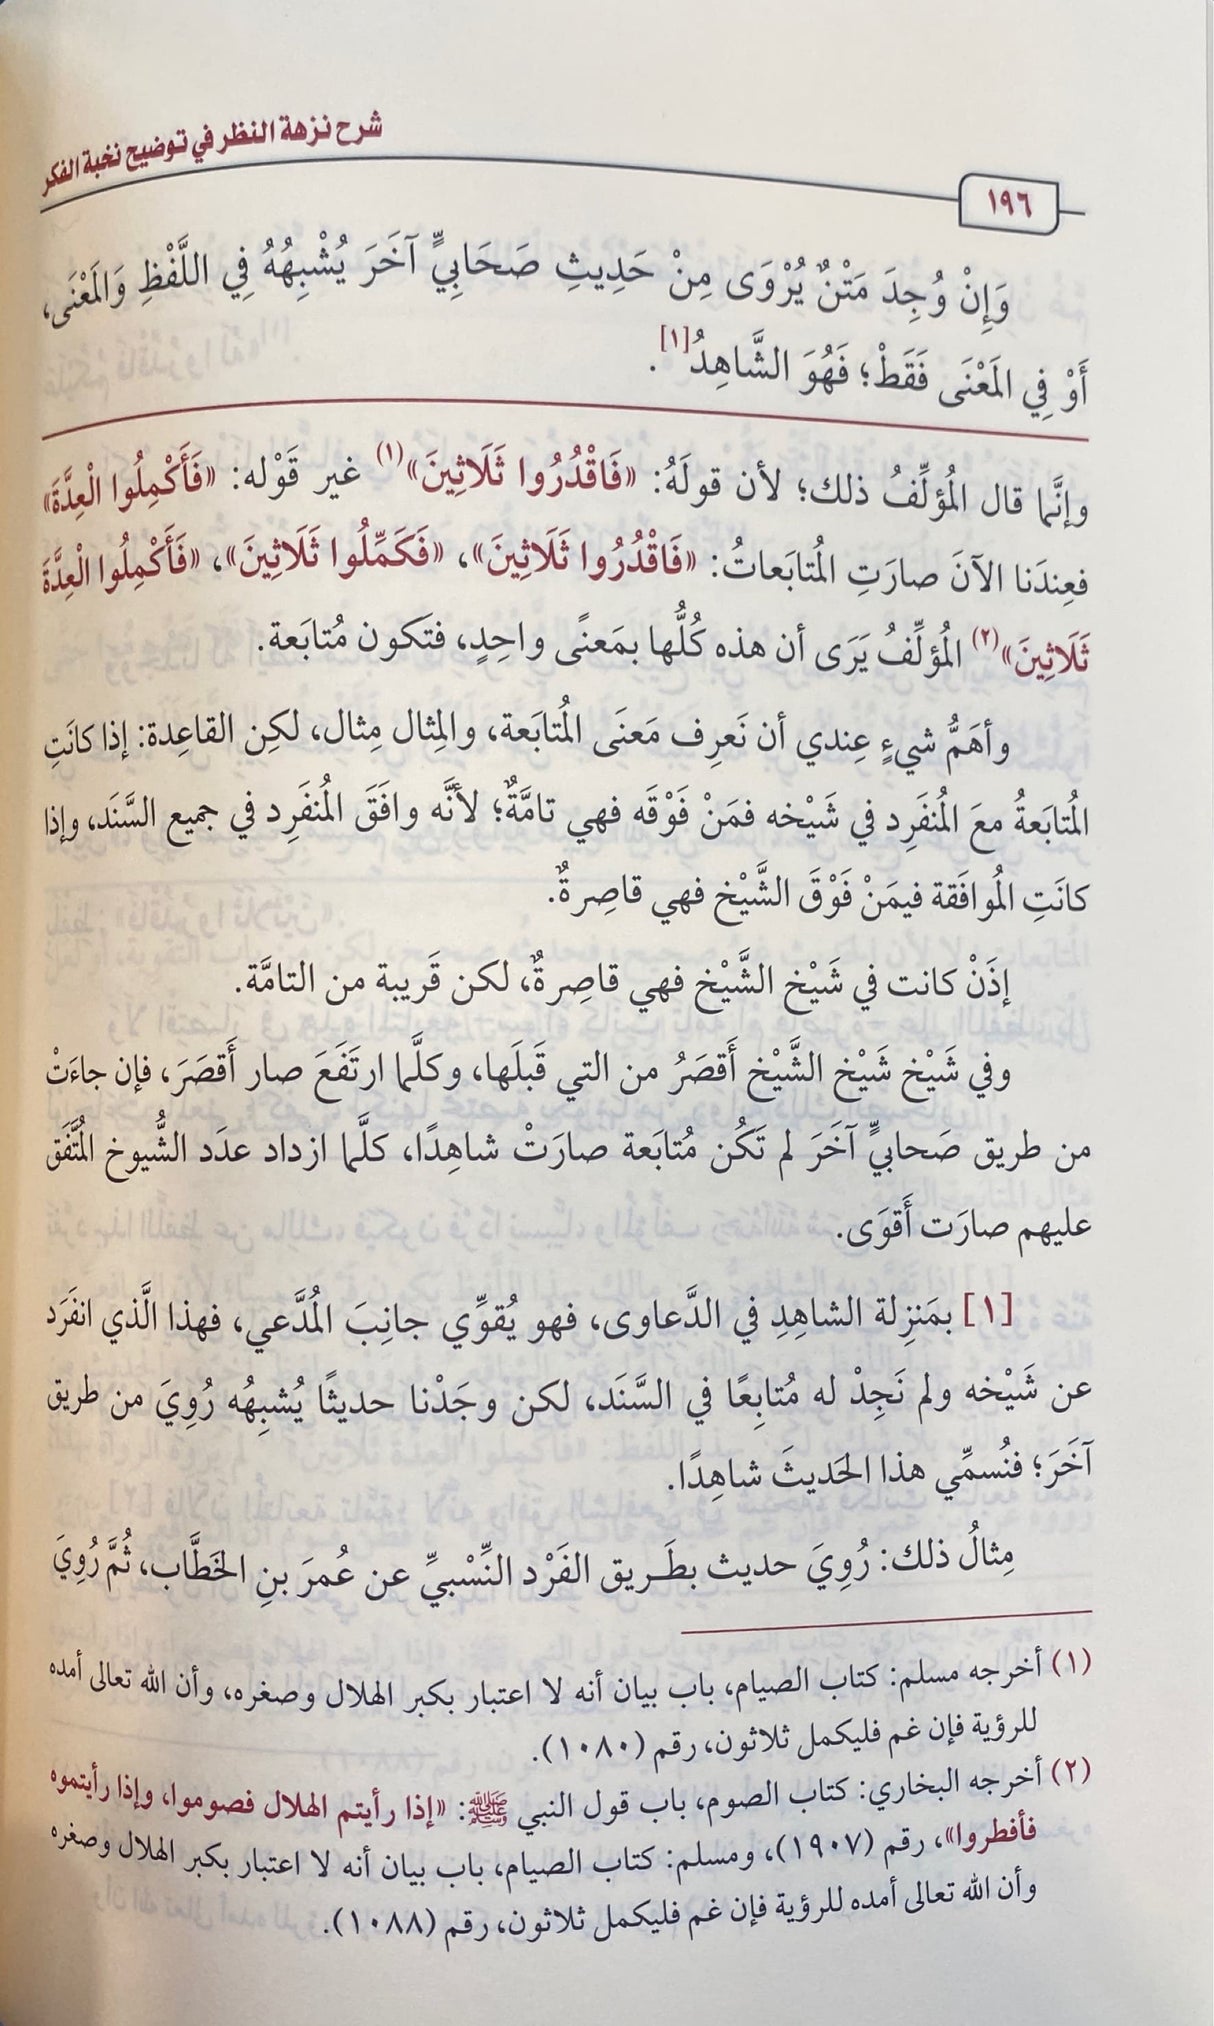 شرح نزهة النظر في توضيح نخبة الفكر
١٩٦
وَإِنْ وُجِدَ مَتْنٌ يُرْوَى مِنْ حَدِيثِ صَحَابِيٍّ آخَرَ يُشْبِهُهُ فِي اللَّفْظِ وَالمَعْنَى،
أَوْ فِي المَعْنَى فَقَطْ؛ فَهُوَ الشَّاهِدُ[١].
وإنَّما قال المُؤلِّفُ ذلك؛ لأن قولَهُ: «فَاقْدُرُوا ثَلَاثِينَ»(١) غير قَوْله: «فَأَكْمِلُوا الْعِدَّةَ»
فعِندَنا الآنَ صارَتِ المُتابَعاتُ: «فَاقْدُرُوا ثَلَاثِينَ»، «فَكَمِّلُوا ثَلَاثِينَ»، «فَأَكْمِلُوا الْعِدَّةَ
ثَلَاثِينَ»(٢) المُؤلِّفُ يَرَى أن هذه كُلُّها بمَعنًى واحِدٍ، فتَكون مُتابَعة.
وأهَمُّ شيءٍ عِندي أن نَعرِف مَعنَى المُتابَعة، والمِثال مِثال، لكِن القاعِدة: إذا كانَتِ
المُتابَعةُ معَ المُنفَرِد في شَيْخه فمَنْ فَوْقَه فهي تامَّةٌ؛ لأنَّه وافَقَ المُنفَرِد في جميع السَّنَد، وإذا
كانَتِ المُوافَقة فيمَنْ فَوْقَ الشَّيْخ فهي قاصِرةٌ.
إذَنْ كانت في شَيْخ الشَّيْخ فهي قاصِرةٌ، لكن قَريبة من التامَّة.
وفي شَيْخ شَيْخ الشَّيْخ أَقصَرُ من التي قَبلَها، وكلَّما ارتَفَعَ صار أَقصَرَ، فإن جاءَتْ
من طريق صَحابيٍّ آخَرَ لم تَكُن مُتابَعة صارَتْ شاهِدًا، كلَّما ازداد عدَد الشُّيوخ المُتَّفَق
عليهم صارَت أَقوَى.
[١] بمَنزِلة الشاهِدِ في الدَّعاوى، فهو يُقوِّي جانِبَ المُدَّعي، فهذا الَّذي انفَرَد
عن شَيْخه ولم نَجِدْ له مُتابِعًا في السَّنَد، لكن وجَدْنا حديثًا يُشبِهُه رُوِيَ من طريق
آخَرَ؛ فنُسمِّي هذا الحَديثَ شاهِدًا.
مِثالُ ذلك: رُوِيَ حديث بطَريق الفَرْد النِّسْبيِّ عن عُمرَ بنِ الخَطَّاب، ثُمَّ رُوِيَ
(١) أخرجه مسلم: كتاب الصيام، باب بيان أنه لا اعتبار بكبر الهلال وصغره، وأن الله تعالى أمده
للرؤية فإن غم فليكمل ثلاثون، رقم (١٠٨٠).
(٢) أخرجه البخاري: كتاب الصوم، باب قول النبي ﷺ: «إذا رأيتم الهلال فصوموا، وإذا رأيتموه
فأفطروا»، رقم (١٩٠٧)، ومسلم: كتاب الصيام، باب بيان أنه لا اعتبار بكبر الهلال وصغره
وأن الله تعالى أمده للرؤية فإن غم فليكمل ثلاثون، رقم (١٠٨٨).